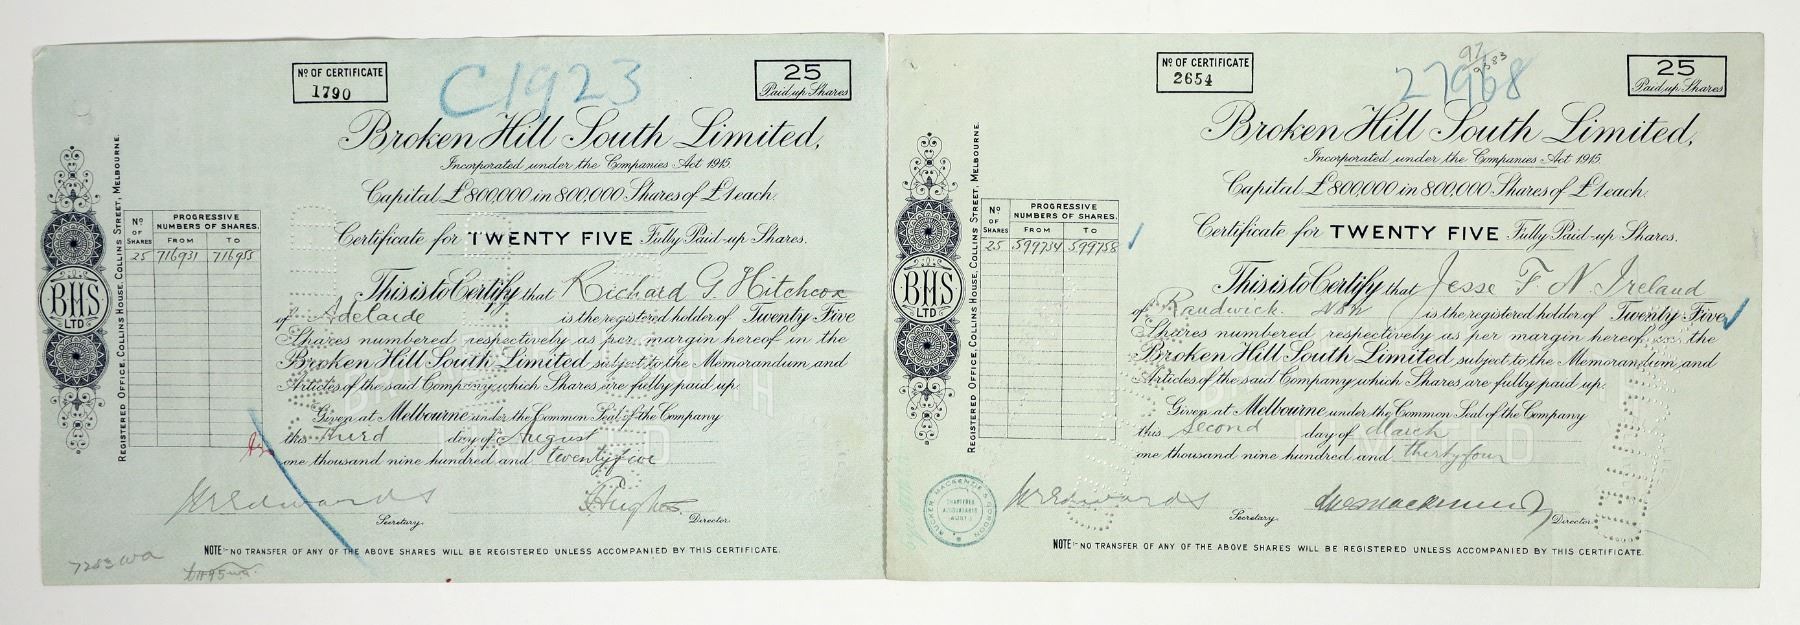 Nº OF CERTIFICATE
1790
C1923
25
Paid up Shares
Broken Hill South Limited,
Incorporated under the Companies Act 1915.
Capital £800,000 in 800,000 Shares of £1 each.
Certificate for TWENTY FIVE Fully Paid-up Shares.
This is to Certify that Richard G. Hitchcox
of Adelaide is the registered holder of Twenty Five
Shares numbered respectively as per margin hereof in the
Broken Hill South Limited subject to the Memorandum and
Articles of the said Company which Shares are fully paid up.
Given at Melbourne under the Common Seal of the Company
this Third day of August
one thousand nine hundred and twentyfive
Secretary.
Director.
NOTE:- NO TRANSFER OF ANY OF THE ABOVE SHARES WILL BE REGISTERED UNLESS ACCOMPANIED BY THIS CERTIFICATE.
BHS
LTD
REGISTERED OFFICE, COLLINS HOUSE, COLLINS STREET, MELBOURNE.
Nº OF SHARES
PROGRESSIVE NUMBERS OF SHARES.
FROM TO
25 716931 716955
Nº OF CERTIFICATE
2654
27968
25
Paid up Shares
Broken Hill South Limited,
Incorporated under the Companies Act 1915.
Capital £800,000 in 800,000 Shares of £1 each.
Certificate for TWENTY FIVE Fully Paid-up Shares.
This is to Certify that Jesse F N Ireland
of Randwick. NSW is the registered holder of Twenty Five
Shares numbered respectively as per margin hereof in the
Broken Hill South Limited subject to the Memorandum and
Articles of the said Company which Shares are fully paid up.
Given at Melbourne under the Common Seal of the Company
this Second day of March
one thousand nine hundred and thirtyfour
Secretary.
Director.
NOTE:- NO TRANSFER OF ANY OF THE ABOVE SHARES WILL BE REGISTERED UNLESS ACCOMPANIED BY THIS CERTIFICATE.
BHS
LTD
REGISTERED OFFICE, COLLINS HOUSE, COLLINS STREET, MELBOURNE.
Nº OF SHARES
PROGRESSIVE NUMBERS OF SHARES.
FROM TO
25 599734 599758